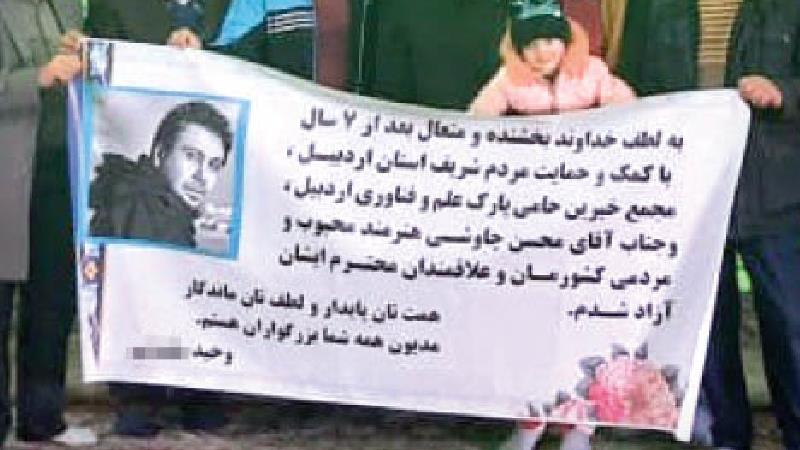 به لطف خداوند بخشنده و متعال بعد از ۷ سال
با کمک و حمایت مردم شریف استان اردبیـل ،
مجمع خیرین حامی پارک علم و فناوری اردبیل ،
وجناب آقای محسن چاوشی هنرمند محبوب و
مردمی کشورمـان و علاقمندان محتـرم ایشان
آزاد شـدم.
همت تان پایدار و لطف تان ماندگار
مدیون همه شما بزرگواران هستم.
وحید